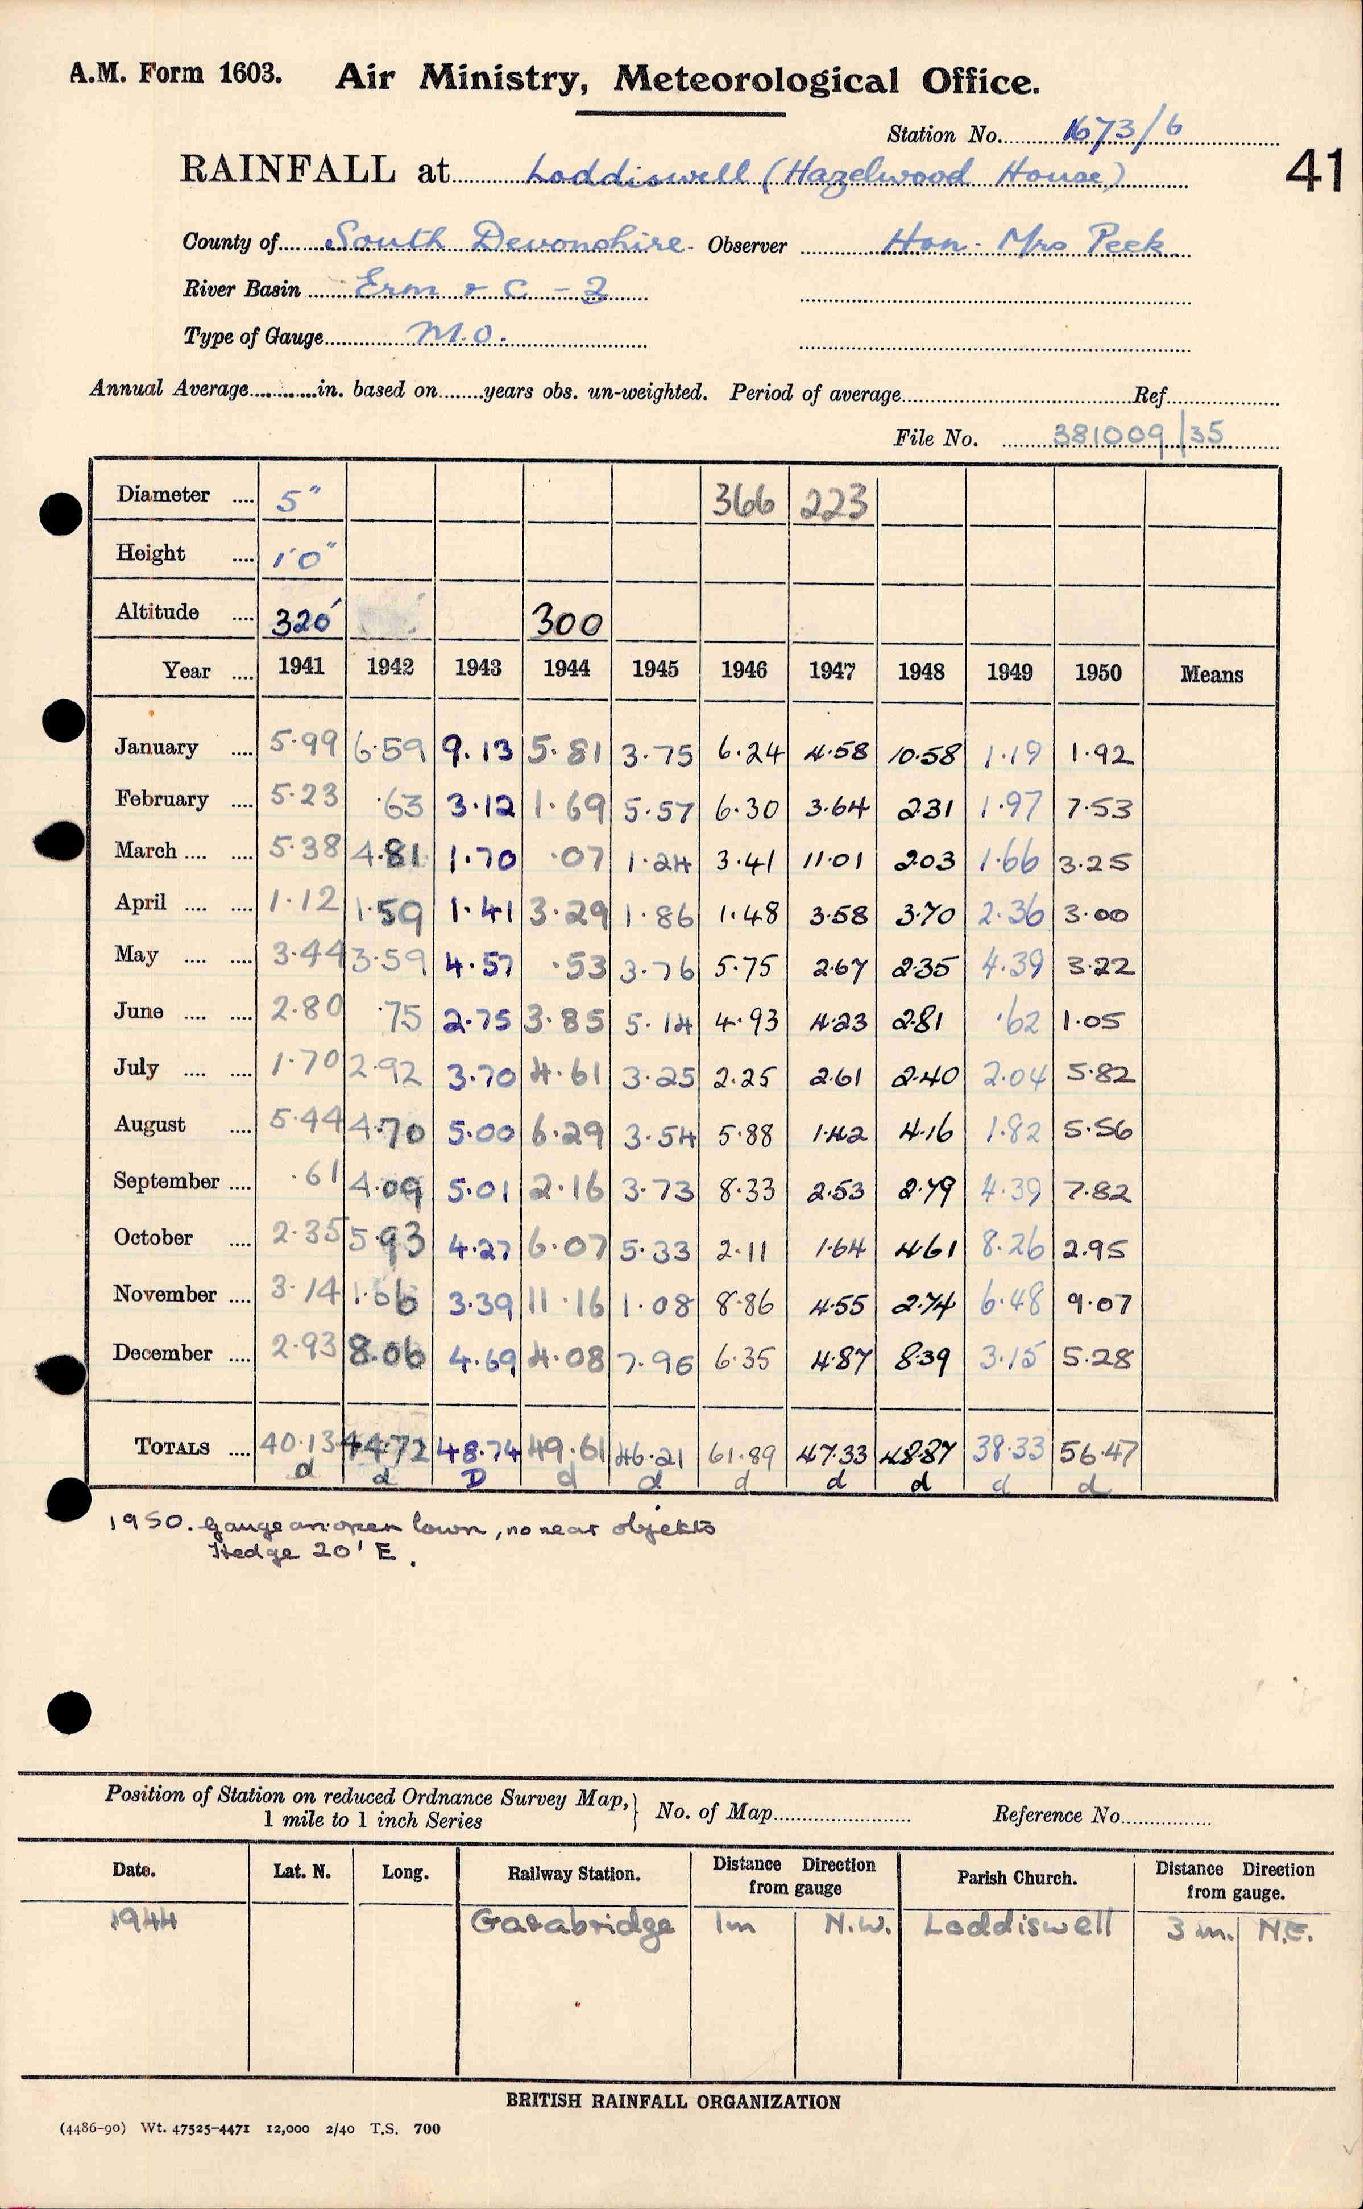 A.M. Form 1603. Air Ministry, Meteorological Office.
Station No. 1673/6
RAINFALL at Loddiswell (Hazelwood House) 41
County of South Devonshire. Observer Hon. Mrs Peek
River Basin Erm & C - 2
Type of Gauge M.O.
Annual Average in. based on years obs. un-weighted. Period of average Ref.
File No. 381009/35
Diameter 5" 366 223
Height 1'0"
Altitude 320' 300
Year 1941 1942 1943 1944 1945 1946 1947 1948 1949 1950 Means
January 5.99 6.59 9.13 5.81 3.75 6.24 4.58 10.58 1.19 1.92
February 5.23 .63 3.12 1.69 5.57 6.30 3.64 2.31 1.97 7.53
March 5.38 4.81 1.70 .07 1.24 3.41 11.01 2.03 1.66 3.25
April 1.12 1.59 1.41 3.29 1.86 1.48 3.58 3.70 2.36 3.00
May 3.44 3.59 4.57 .53 3.76 5.75 2.67 2.35 4.39 3.22
June 2.80 .75 2.75 3.85 5.14 4.93 4.23 2.81 .62 1.05
July 1.70 2.92 3.70 4.61 3.25 2.25 2.61 2.40 2.04 5.82
August 5.44 4.70 5.00 6.29 3.54 5.88 1.42 4.16 1.82 5.56
September .61 4.09 5.01 2.16 3.73 8.33 2.53 2.79 4.39 7.82
October 2.35 5.93 4.27 6.07 5.33 2.11 1.64 4.61 8.26 2.95
November 3.14 1.06 3.39 11.16 1.08 8.86 4.55 2.74 6.48 9.07
December 2.93 8.06 4.69 4.08 7.96 6.35 4.87 8.39 3.15 5.28
TOTALS 40.13 44.72 48.74 49.61 46.21 61.89 47.33 48.87 38.33 56.47
d d D d d d d d d d
1950. Gauge on open lawn, no near objects
Hedge 20' E.
Position of Station on reduced Ordnance Survey Map, No. of Map Reference No.
1 mile to 1 inch Series
Date. Lat. N. Long. Railway Station. Distance Direction from gauge Parish Church. Distance Direction from gauge.
1944 Garabridge 1m N.W. Loddiswell 3 m. N.E.
BRITISH RAINFALL ORGANIZATION
(4486-90) Wt. 47525-4471 12,000 2/40 T.S. 700